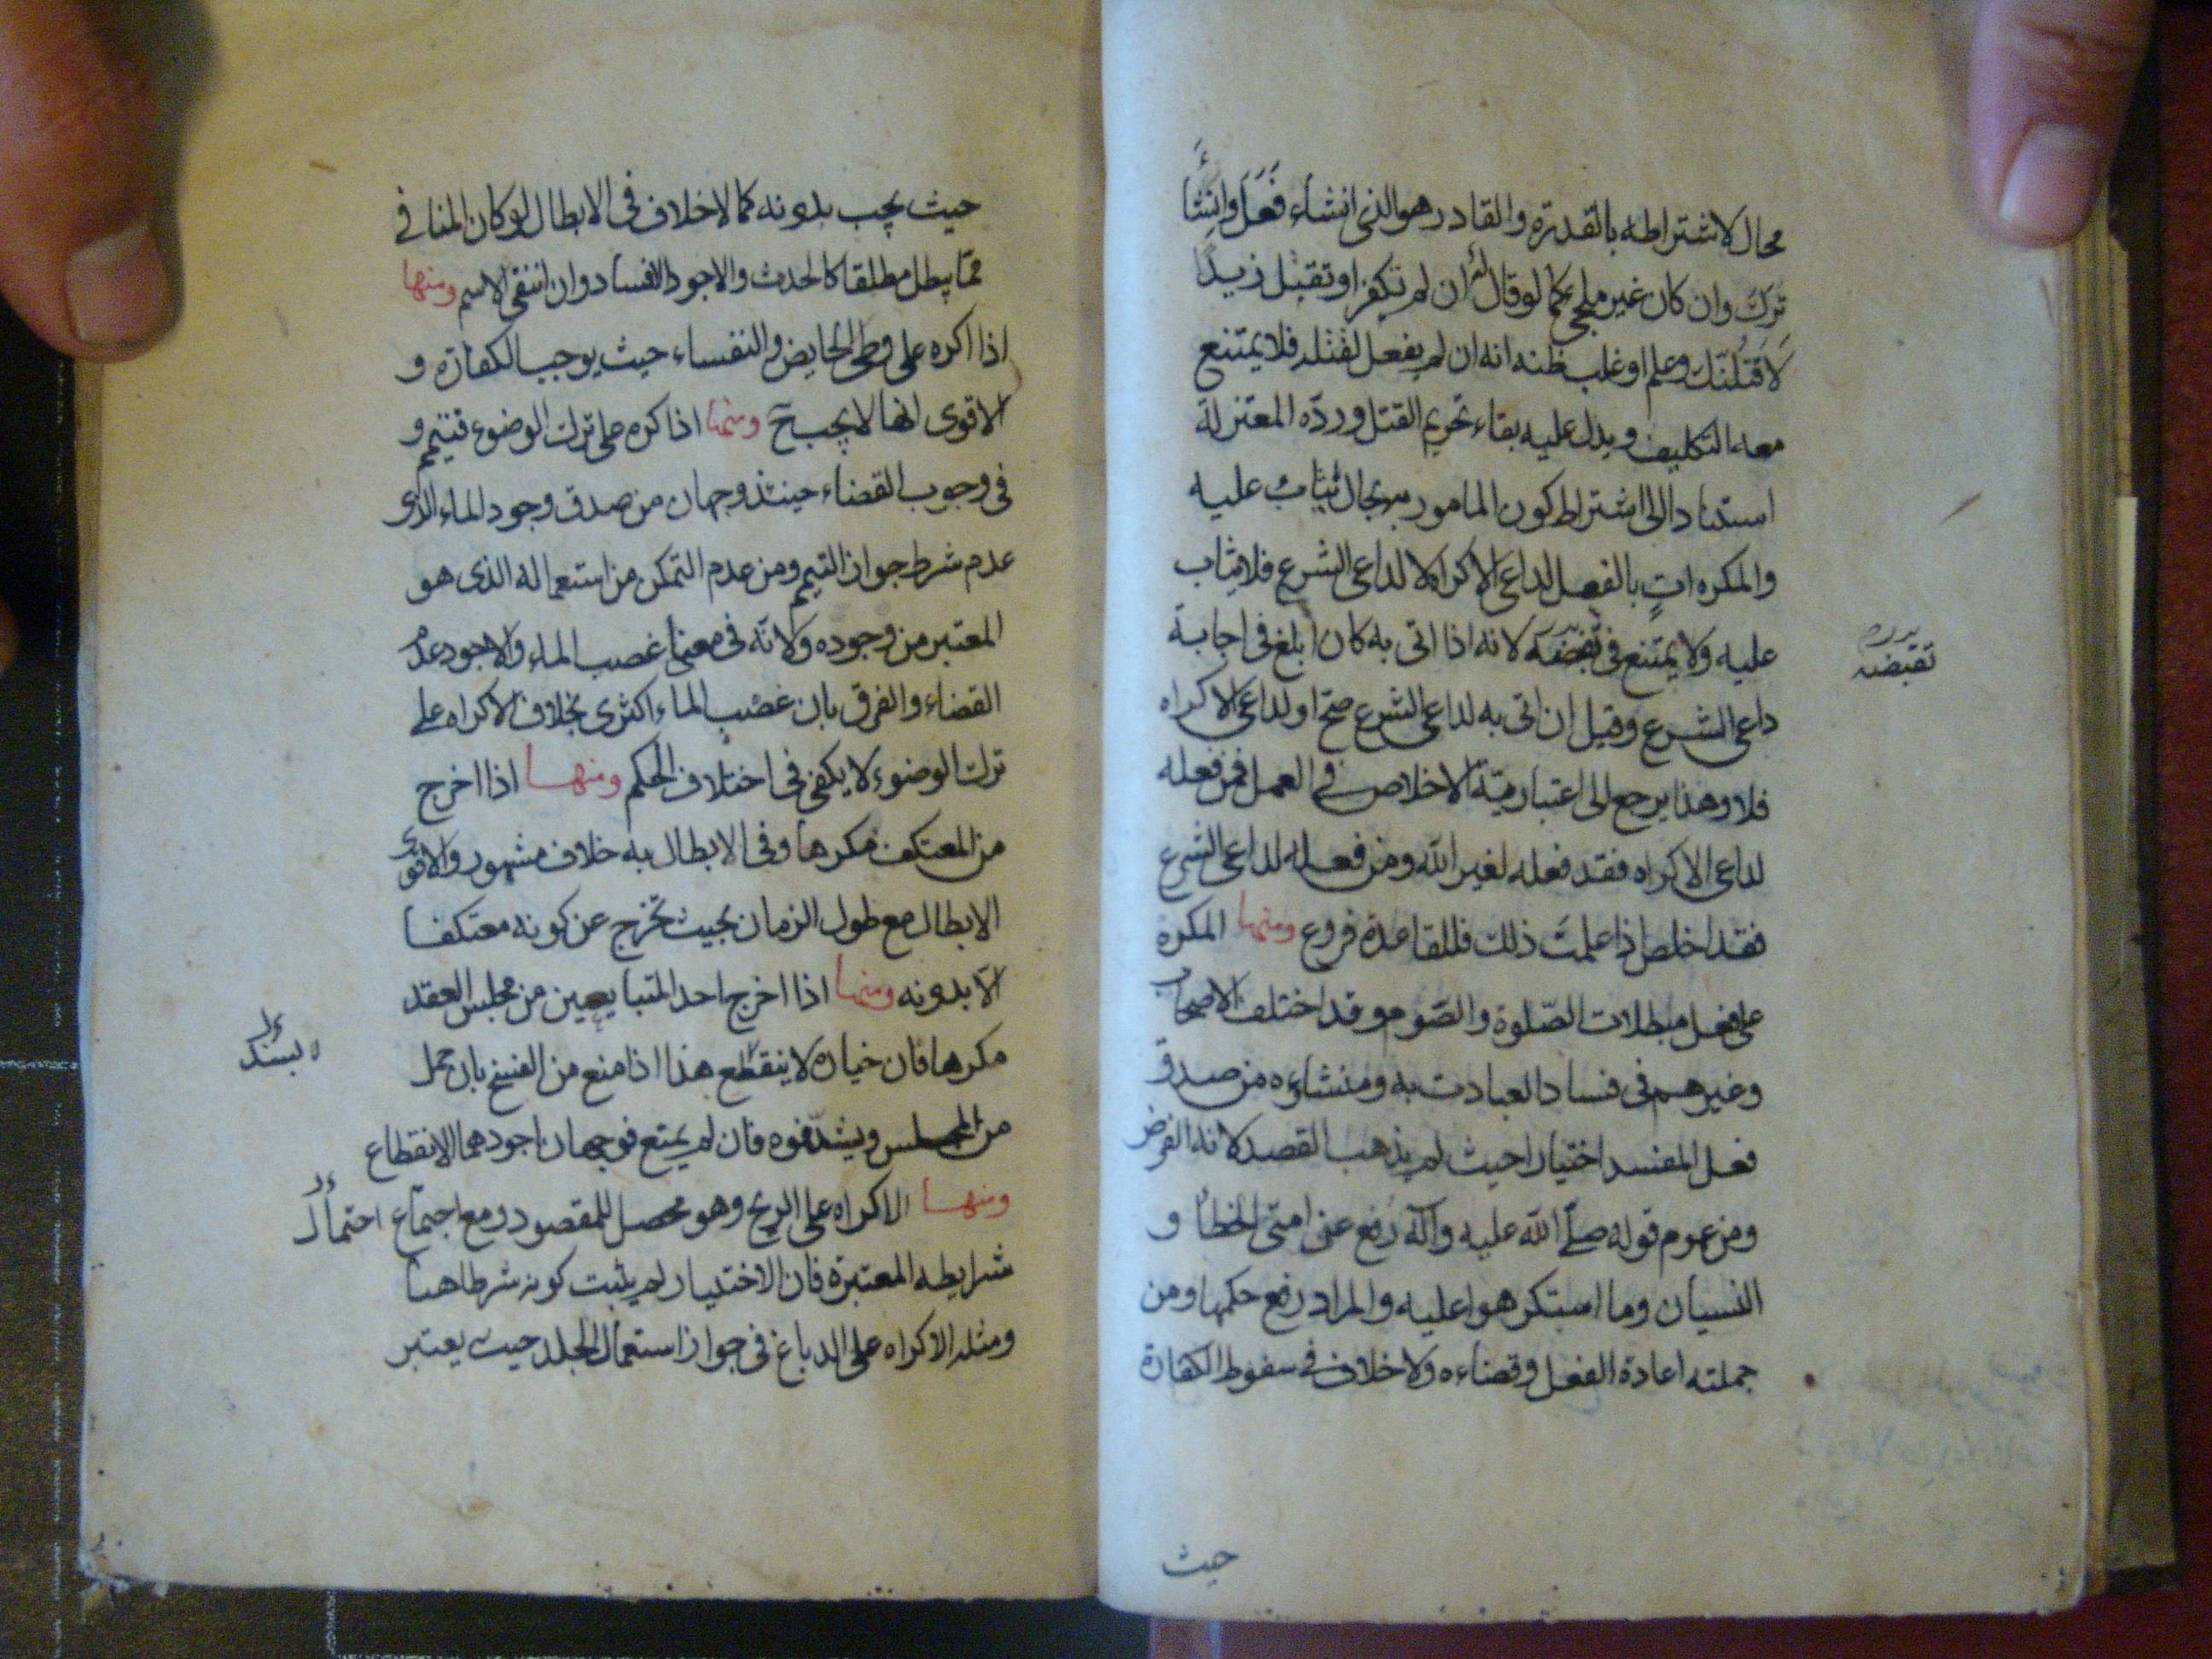 محال لاشتراطه بالقدرة والقادر هو الذى ان شاء فَعَلَ وان شاءَ
تَرَكَ وان كان غير ملجئ كما لو قال له ان لم تكفر او تقتل زيداً
لاَقتُلَنّك وعلم او غلب ظنه انه ان لم يفعل لقتله فلا يمتنع
معه التكليف ويدل عليه بقاء تحريم القتل وردّه المعتزلة
استنادا الى اشتراط كون المامور به بحال يُثاب عليه
والمكره اتٍ بالفعل لداعى الاكراه لا لداعى الشرع فلا يثاب
عليه ولا يمتنع فى نقيضه لانه اذا اتى به كان ابلغ فى اجابة
نقيضه
داعى الشرع وقيل ان اتى به لداعى الشرع صح او لداعى الاكراه
فلا وهذا يرجع الى اعتبار نيّة الاخلاص فى العمل فمن فعله
لداعى الاكراه فقد فعله لغير الله ومن فعله لداعى الشرع
فقد اخلص اذا علمتَ ذلك فللقاعدة فروع ومنها المكره
على فعل مبطلات الصّلوة والصّوم وقد اختلف الاصحاب
وغيرهم فى فساد العبادت به ومنشاءه من صدق
فعل المفسد اختيارا حيث لم يذهب القصد لانه الفرض
ومن عموم قوله صلّى الله عليه وآله رُفع عن امتى الخطأ و
النسيان وما استكرهوا عليه والمراد رفع حكمها ومن
جملته اعادة الفعل وقضاءه ولا خلاف فى سقوط الكفارة
حيث
حيث يجب بدونه كما لا خلاف فى الابطال لو كان المنافى
ممّا يبطل مطلقا كالحدث والاجود الافساد وان انتفى الاسم ومنها
اذا اكره على وطى الحايض والنفساء حيث يوجب الكفارة و
الاقوى انها لا يجب ح ومنها اذا كره على ترك الوضوء فتيمم و
فى وجوب القضاء حينئذ وجهان من صدق وجود الماء الذى
عدم شرط جواز التيمم ومن عدم التمكن من استعماله الذى هو
المعتبر من وجوده ولانّه فى معنى غصب الماء والاجود عدم
القضاء والفرق بان غصب الماء اكثرى بخلاف الاكراه على
ترك الوضوء لا يكفى فى اختلاف الحكم ومنهـا اذا اخرج
من المعتكف مكرها وفى الابطال به خلاف مشهور والاقوى
الابطال مع طول الزمان بحيث تخرج عن كونه معتكفا
الّا بدونه ومنها اذا اخرج احد المتبايعين من مجلس العقد
مكرها فان خياره لا ينقطع هذا اذا منع من الفسخ بان حمل
من المجلس ويشدّ فوه فان لم يمنع فوجهان اجودهما الانقطاع
ومنهـا الاكراه على الريح وهو محصل للمقصود ومع اجتماع احتمال
شرايطه المعتبرة فان الاختيار لم يثبت كونه شرطا هنا
ومثله الاكراه على الدباغ فى جواز استعمال الجلد حيث يعتبر